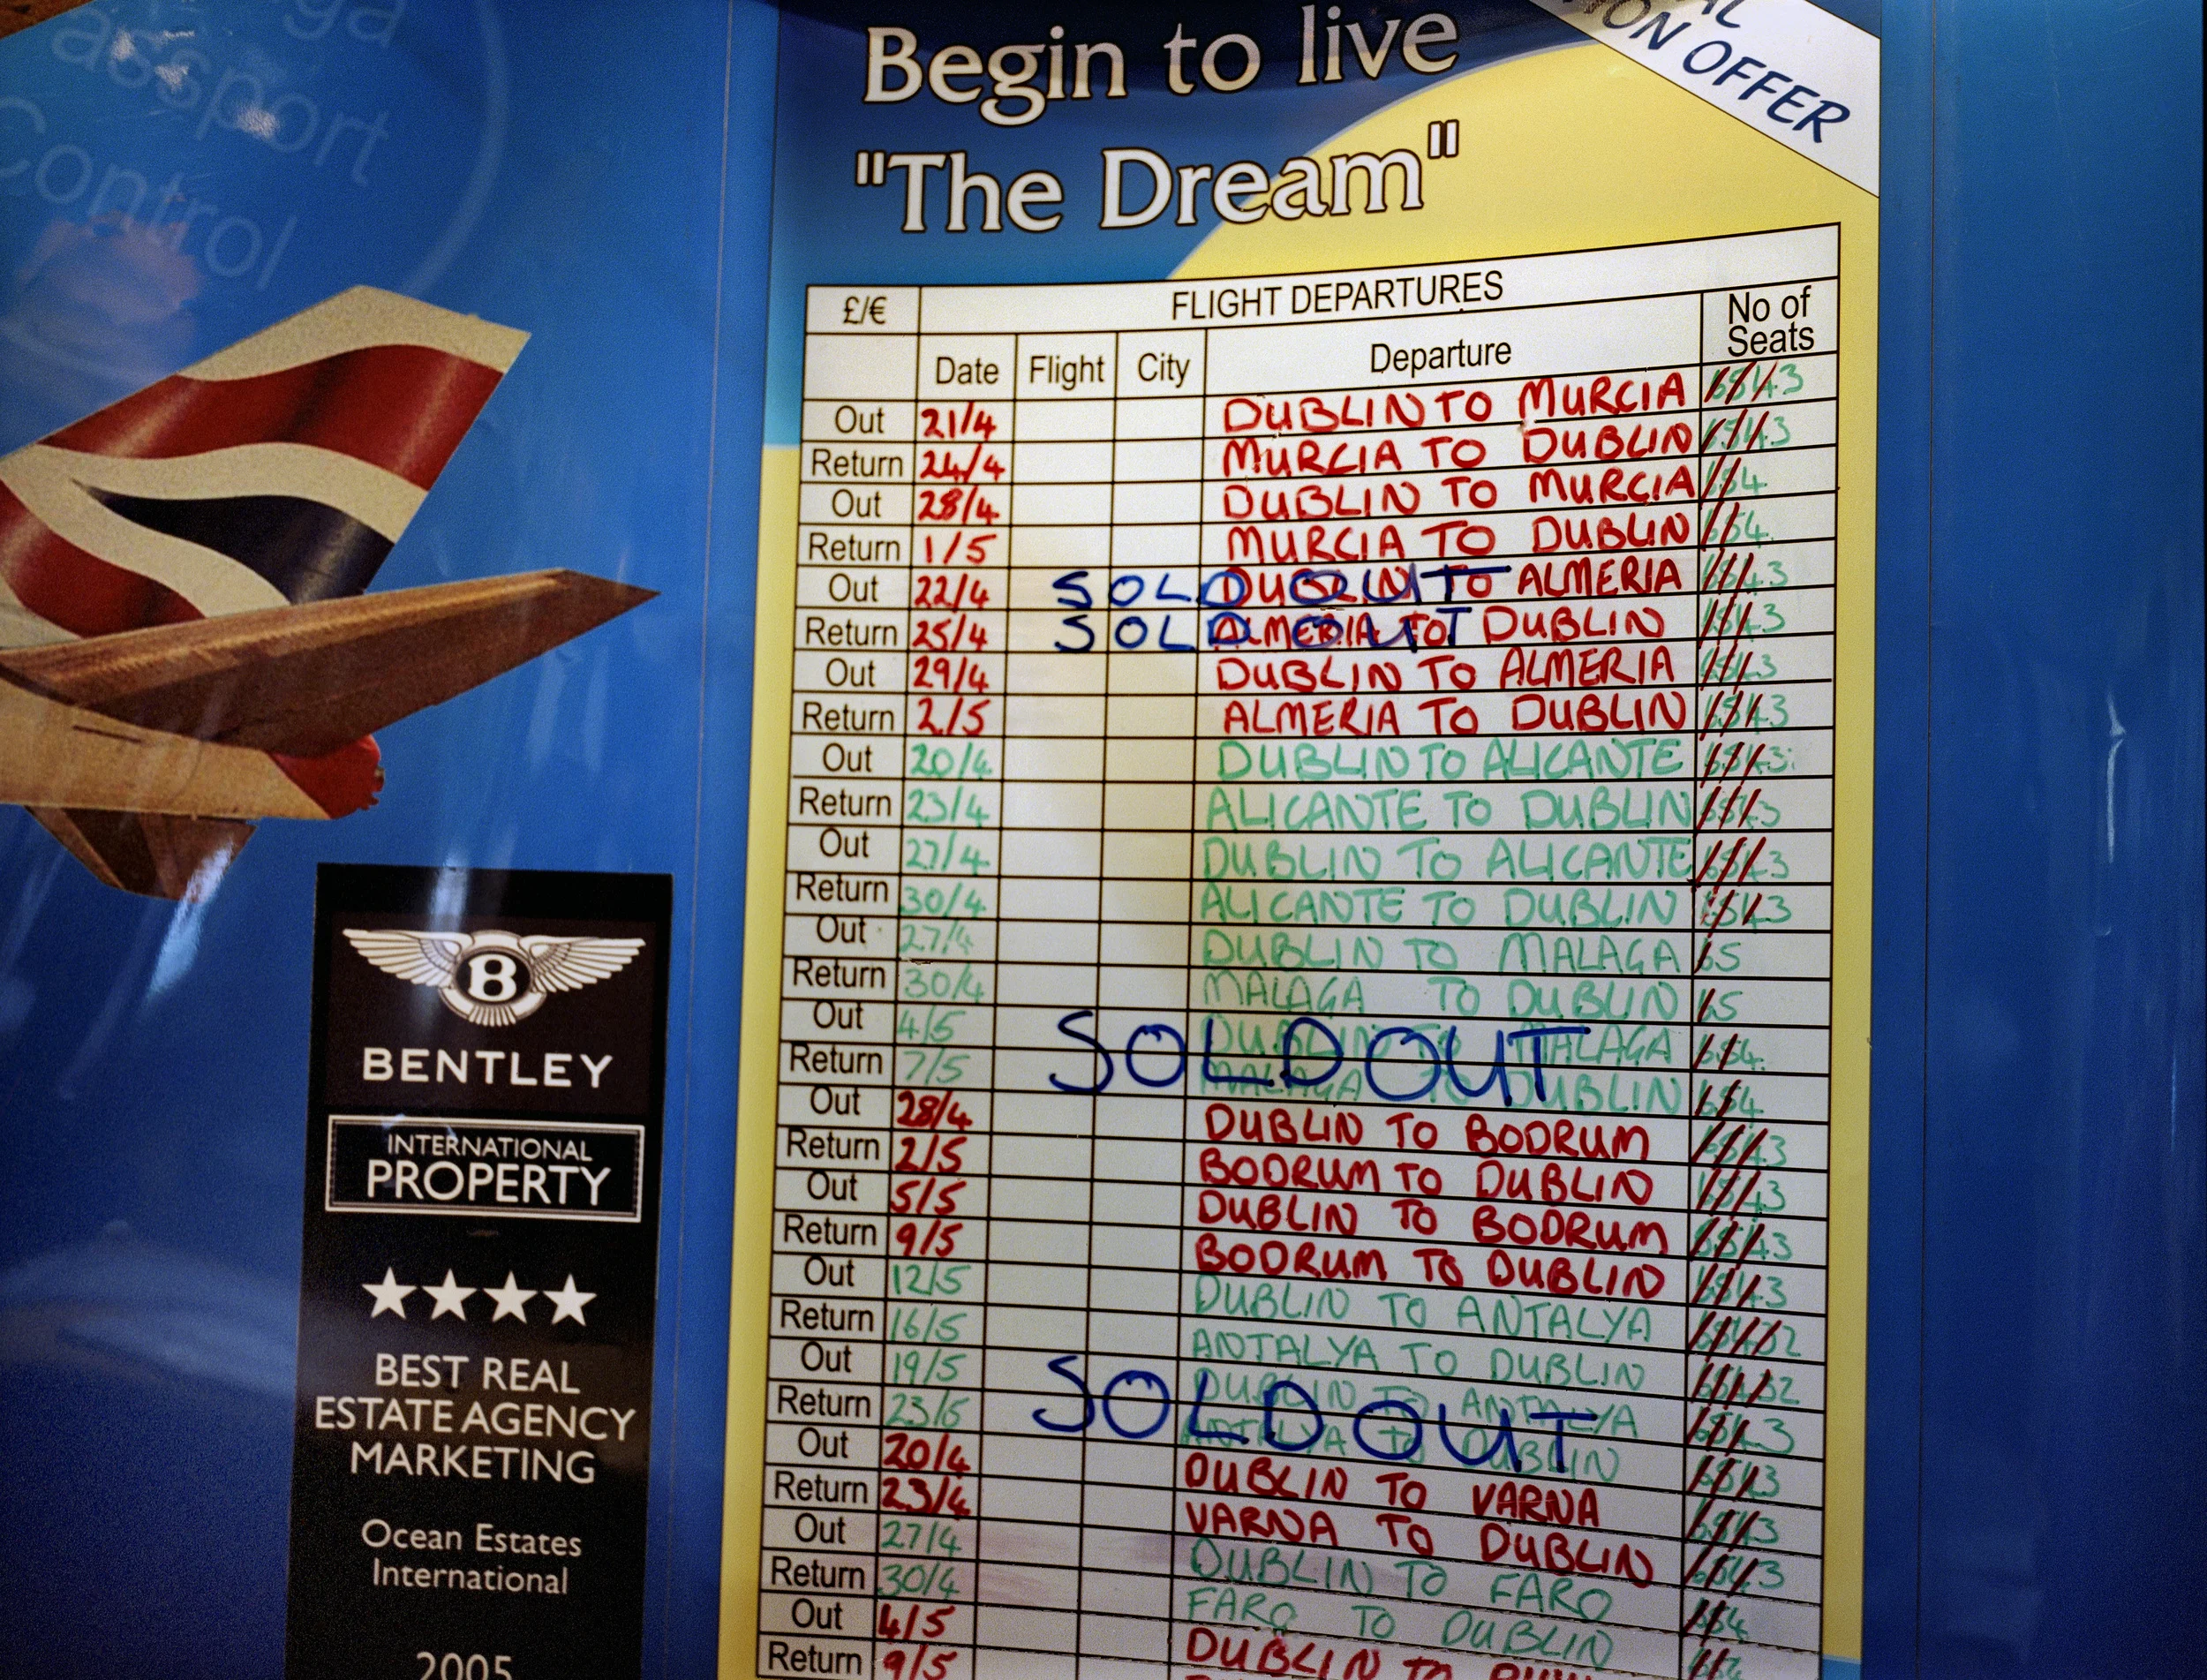 Control
Begin to live
"The Dream"
OFFER
£/€ FLIGHT DEPARTURES No of Seats
Date Flight City Departure
Out 21/4 DUBLIN TO MURCIA 6 5 4 3
Return 24/4 MURCIA TO DUBLIN 6 5 4 3
Out 28/4 DUBLIN TO MURCIA 6 5 4
Return 1/5 MURCIA TO DUBLIN 6 5 4
Out 22/4 DUBLIN TO ALMERIA 6 5 4 3
SOLD OUT
Return 25/4 ALMERIA TO DUBLIN 6 5 4 3
SOLD OUT
Out 29/4 DUBLIN TO ALMERIA 6 5 4 3
Return 2/5 ALMERIA TO DUBLIN 6 5 4 3
Out 20/4 DUBLIN TO ALICANTE 6 5 4 3
Return 23/4 ALICANTE TO DUBLIN 6 5 4 3
Out 27/4 DUBLIN TO ALICANTE 6 5 4 3
Return 30/4 ALICANTE TO DUBLIN 6 5 4 3
Out 27/4 DUBLIN TO MALAGA 6 5
Return 30/4 MALAGA TO DUBLIN 6 5
Out 4/5 DUBLIN TO MALAGA 6 5 4
SOLD OUT
Return 7/5 MALAGA TO DUBLIN 6 5 4
Out 28/4 DUBLIN TO BODRUM 6 5 4 3
Return 2/5 BODRUM TO DUBLIN 6 5 4 3
Out 5/5 DUBLIN TO BODRUM 6 5 4 3
Return 9/5 BODRUM TO DUBLIN 6 5 4 3
Out 12/5 DUBLIN TO ANTALYA 6 5 4 3 2
Return 16/5 ANTALYA TO DUBLIN 6 5 4 3 2
Out 19/5 DUBLIN TO ANTALYA 6 5 4 3
SOLD OUT
Return 23/5 ANTALYA TO DUBLIN 6 5 4 3
Out 20/4 DUBLIN TO VARNA 6 5 4 3
Return 23/4 VARNA TO DUBLIN 6 5 4 3
Out 27/4 DUBLIN TO FARO 6 5 4
Return 30/4 FARO TO DUBLIN
Out 4/5 DUBLIN TO
Return 9/5
B
BENTLEY
INTERNATIONAL
PROPERTY
BEST REAL
ESTATE AGENCY
MARKETING
Ocean Estates
International
2005